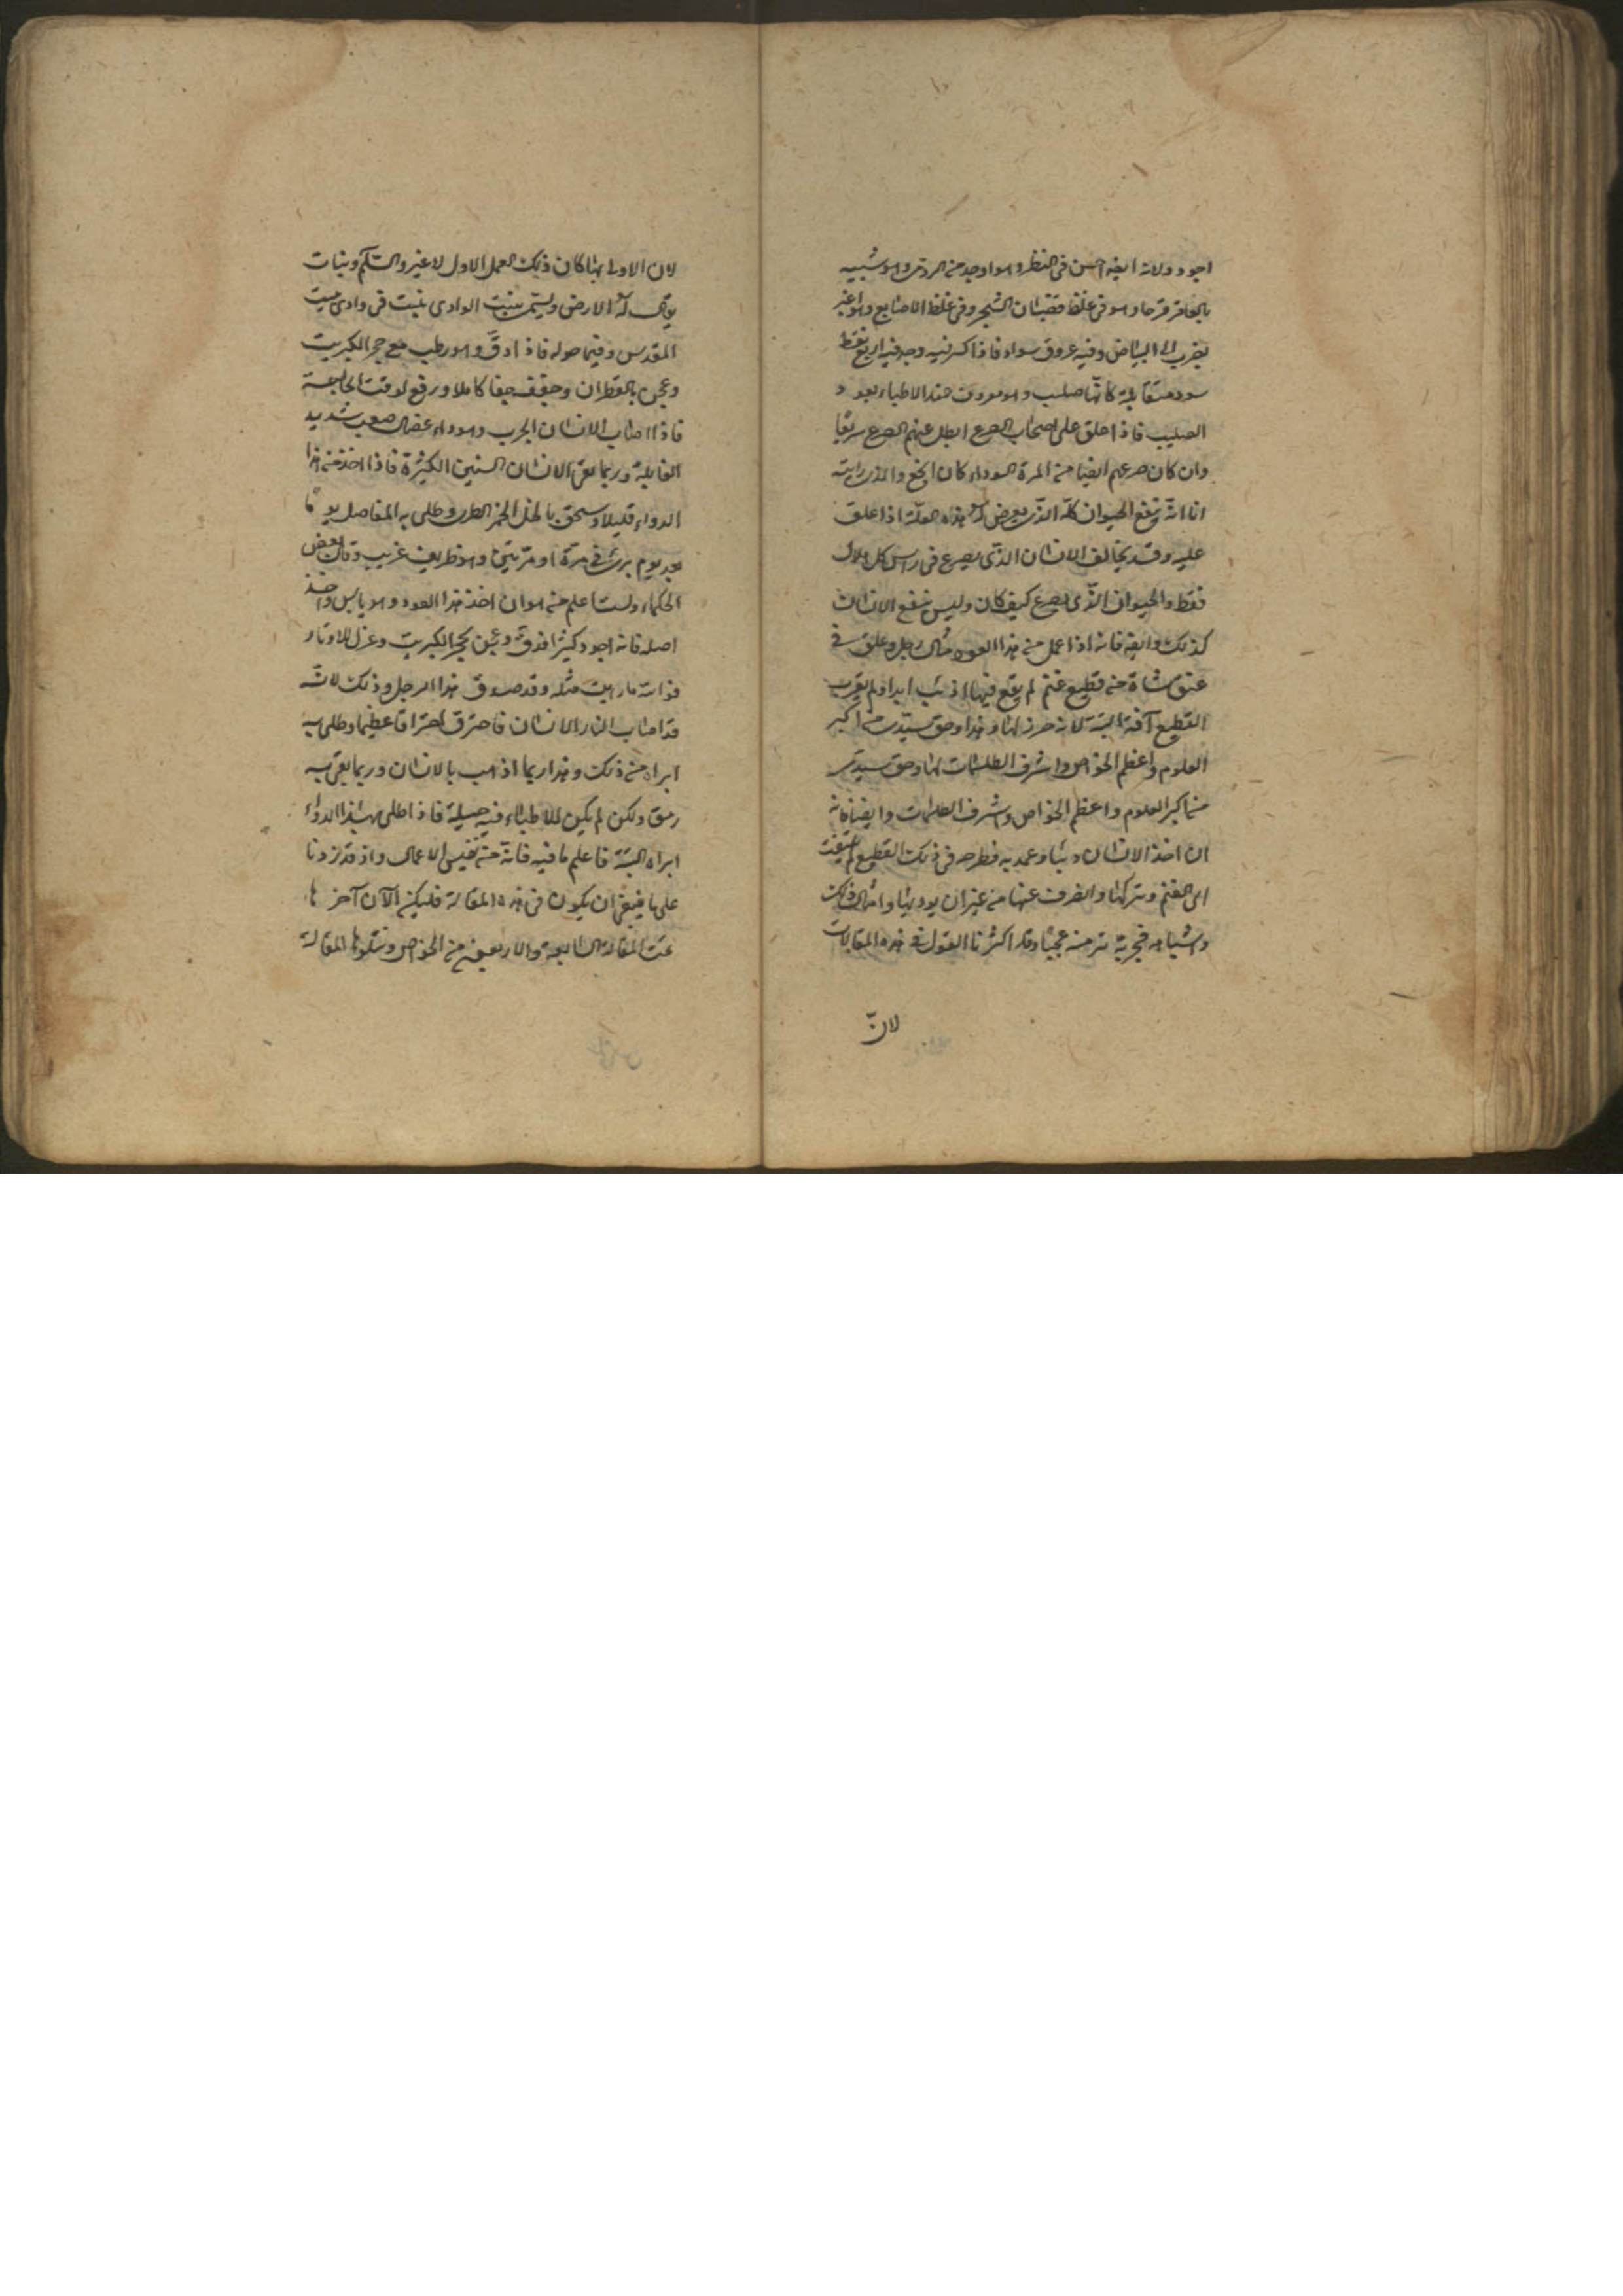 اجود ولانه ايضا احسن فى المنظر وهو اوجد من الردى وهو شبيه
بالعاقر قرحا وهو فى غلظ قضبان الشجر وفى غلظ الاصابع وهو اغبر
يضرب الى البياض وفيه عروق سواد فاذا كسر وجد فيه اربع نقط
سود متقابلة كانها صليب وهو معروف عند الاطباء بعود
الصليب فاذا علق على اصحاب الصرع ابطل عنهم الصرع سريعا
وان كان صرعهم ايضا من المرة السوداء كان انجع والذى رايته
انا انه ينفع الحيوان كله الذى يعرض له هذه العلة اذا علق
عليه وقد يخالف الانسان الذى يصرع فى راس كل هلال
فقط والحيوان الذى يصرع كيف كان وليس ينفع الانسان
كذلك وايضا فانه اذا عمل من هذا العود مثال رجل وعلق فى
عنق شاة من قطيع غنم لم يقع فيها ذئب ابدا ولم يقرب
القطيع آفة البتة لانه حرز لها وهذا وحق سيدى من اكبر
العلوم واعظم الخواص واشرف الطلسمات لها وحق سيدى
من اكبر العلوم واعظم الخواص واشرف الطلسمات وايضا فانه
ان اخذ الانسان ذئبا وعمد به فطرحه فى ذلك القطيع لم يلتفت
الى الغنم وتركها وانصرف عنها من غير ان يؤذيها وامثال ذلك
واشباهه فجربه تر منه عجبا وقد اكثرنا القول فى هذه المقالات
لانّ
لان الاولى بها كان ذلك العمل الاول لا غير والسّلم ونبات
يقال له الارض ويسمى بنبت الوادى ينبت فى وادى بيت
المقدس وفيما حوله فاذا دقّ وهو رطب مع حجر الكبريت
وعجن بالقطران وجفف جفافا كاملا ورفع لوقت الحاجة
فاذا اصاب الانسان الجرب وهو داء عضال صعب شديد
الغايلة وربما بقى الانسان السنين الكثيرة فاذا اخذ من هذا
الدواء قليلا وسحق بالخل الخمر الطرى وطلى به المفاصل يوما
بعد يوم برئ فى مرة او مرتين وهو ظريف غريب وقال بعض
الحكماء ولست اعلم من هو ان اخذ هذا العود وهو يابس واخذ
اصله فانه اجود كثيرا فدق وعجن بحجر الكبريت وعزل للاوتار
فوالله ما رايت مثله وقد صدق هذا الرجل وذلك لانّه
قد اصاب النار الانسان فاحترق احتراقا عظيما وطلى به
ابراه من ذلك وهذا ربما اذهب بالانسان وربما بقى به
رمق ولكن لم يكن للاطباء فيه حيلة فاذا طلى بهذا الدواء
ابراه البتة فاعلم ما فيه فانه من نفيس الاعمال واذ قد زدنا
على ما ينبغى ان يكون فى هذه المقالة فليكن الآن آخرها
تمت المقالة السابعة والاربعين من الخواص ونتلوها المقالة